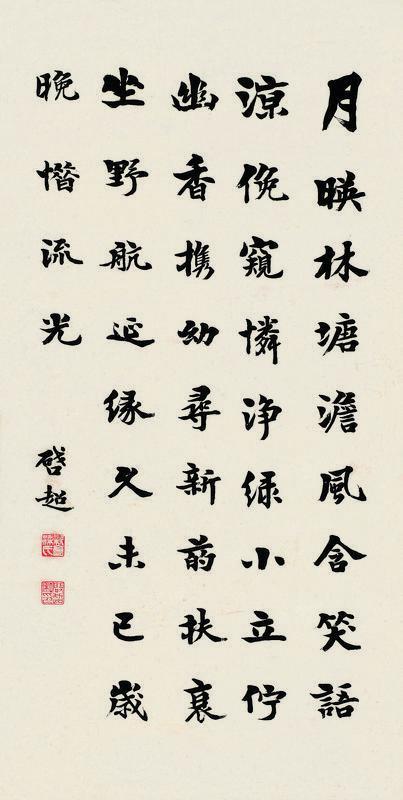 月暎林塘澹風含笑語
涼俛窺憐浄緑小立佇
幽香攜幼尋新菂扶衰
坐野航延緣久未已歲
晚惜流光
啓超